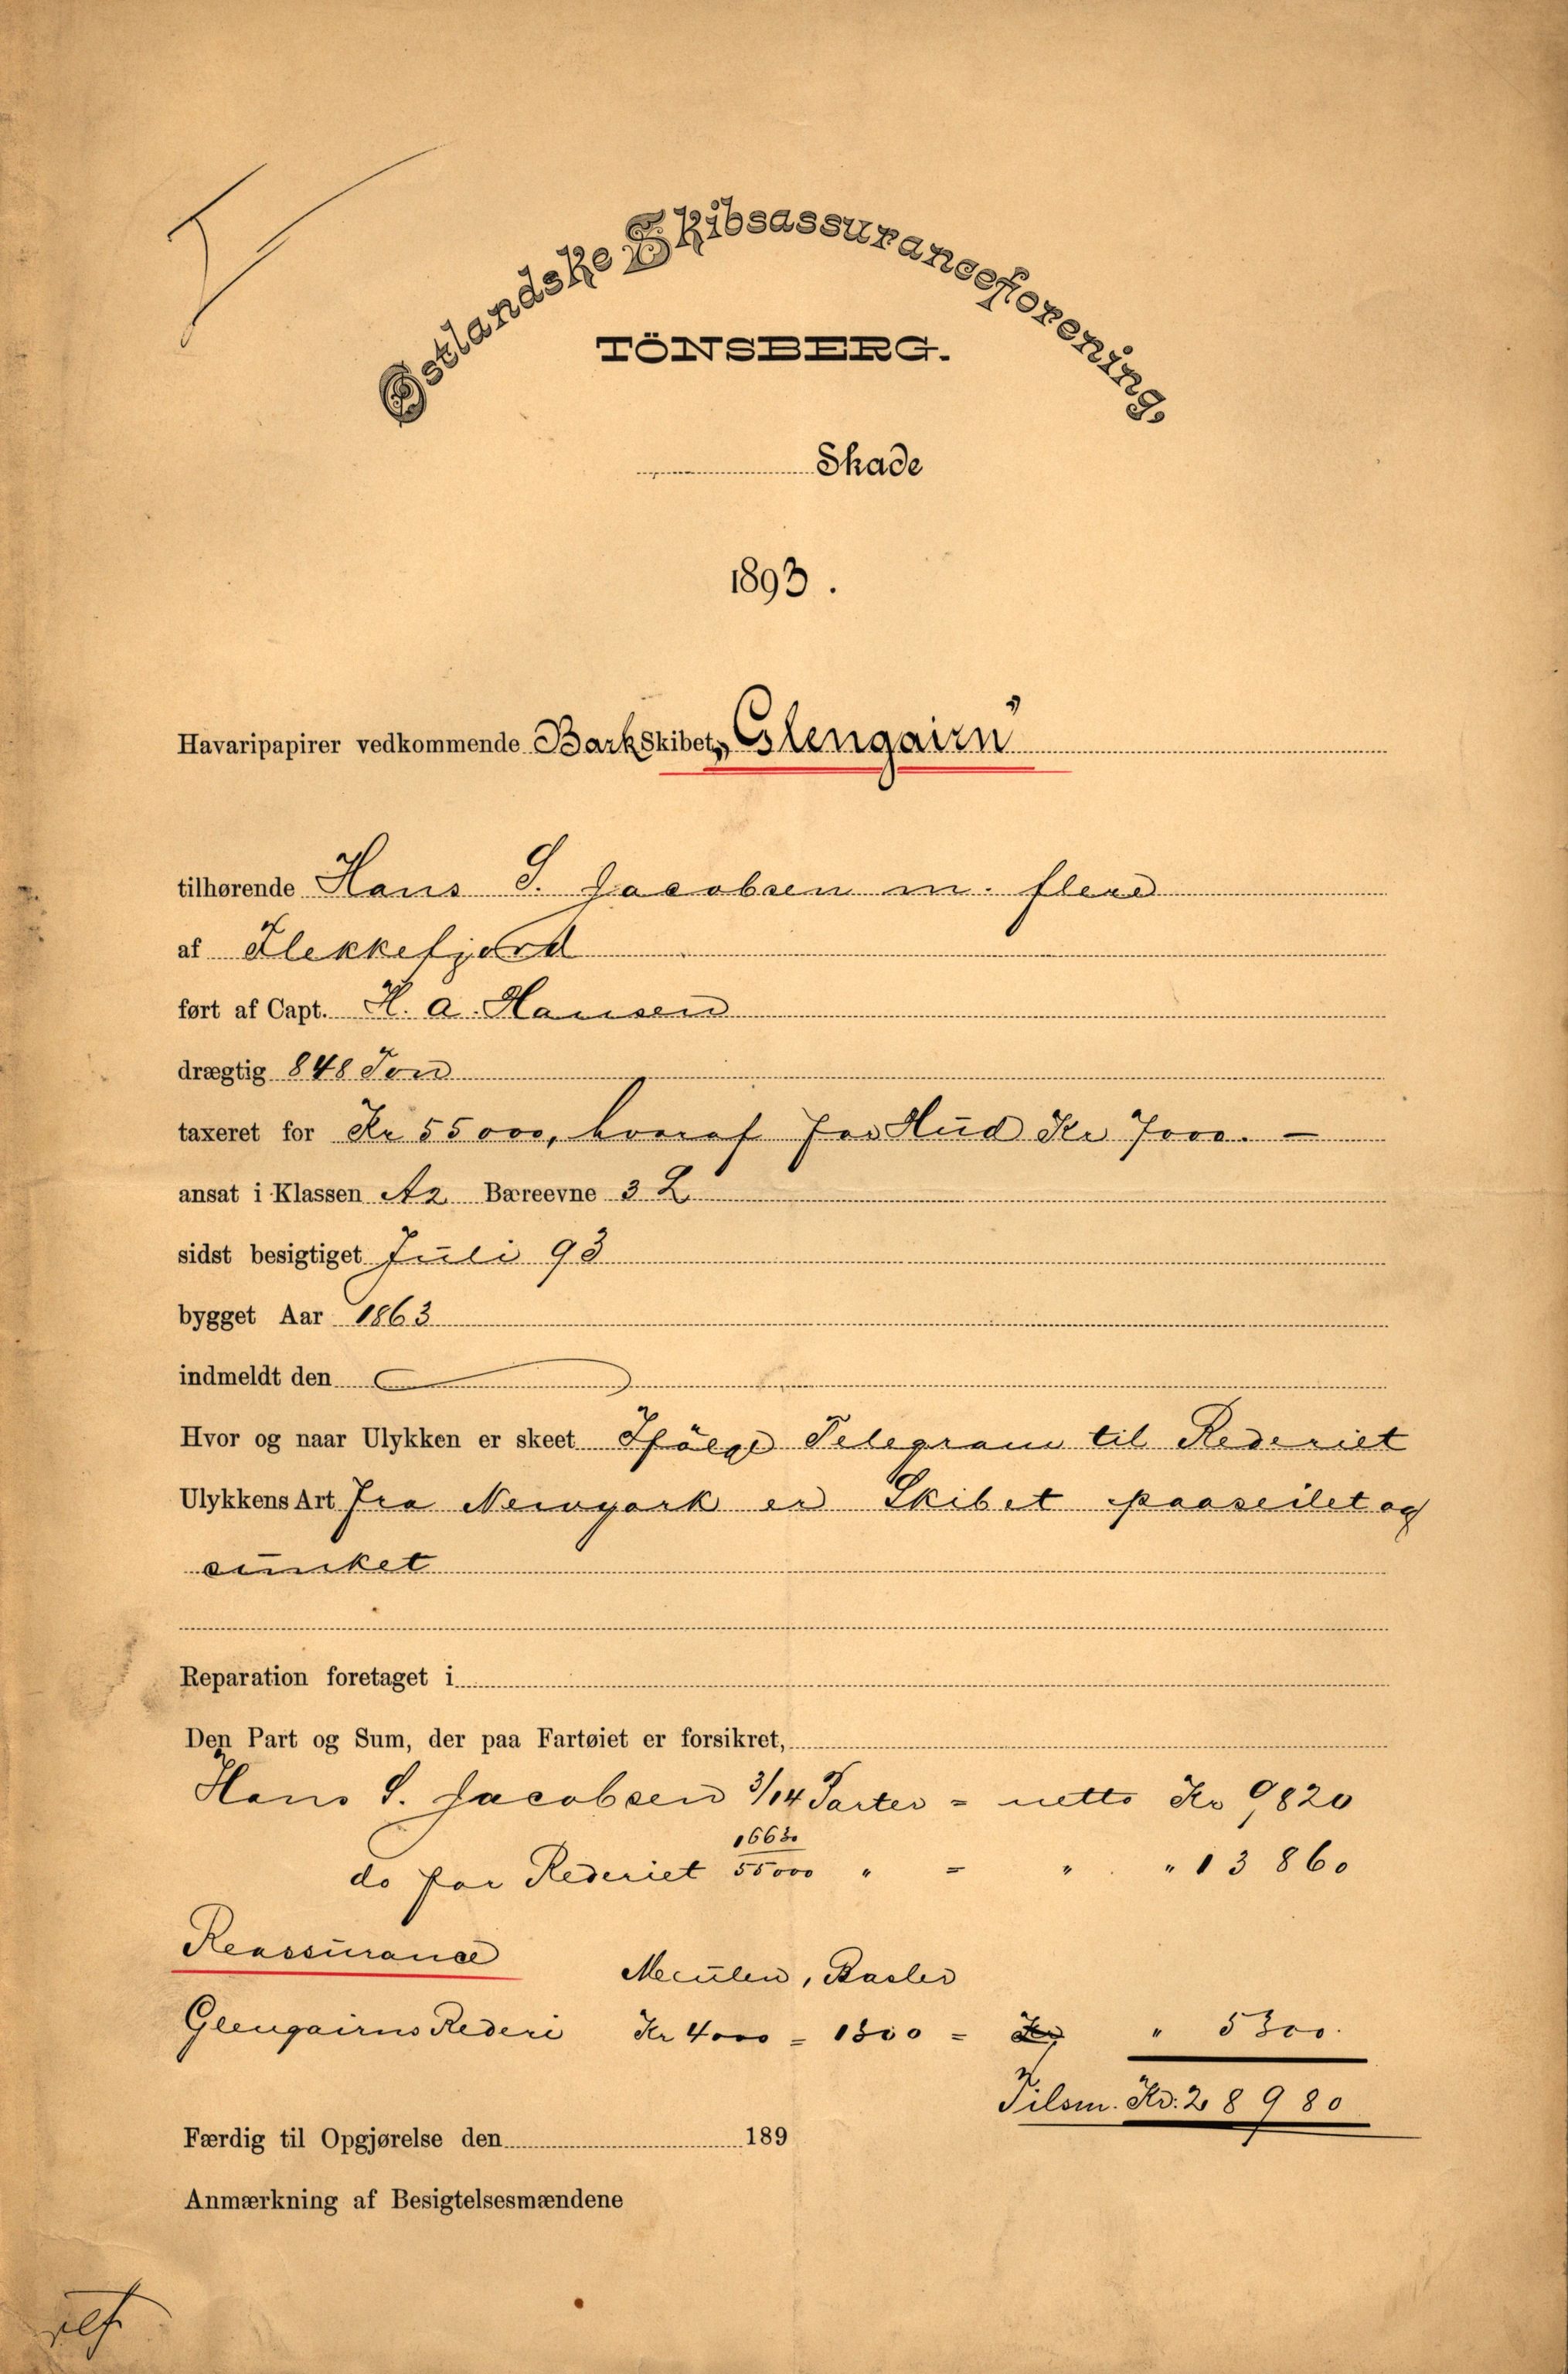 Østlandske Skibsassuranceforening,
TÖNSBERG.
Skade
1893.
Havaripapirer vedkommende BarkSkibet „Glengairn"
tilhørende Hans S. Jacobsen m. flere
af Flekkefjord
ført af Capt. H. A. Hansen
drægtig 848 Ton
taxeret for Kr 55000, hvoraf for Hud Kr 7000. —
ansat i Klassen A2 Bæreevne 3 L
sidst besigtiget Juli 93
bygget Aar 1863
indmeldt den
Hvor og naar Ulykken er skeet Ifölge Telegram til Rederiet
Ulykkens Art fra Newyork er Skibet paaseilet og
sunket
Reparation foretaget i
Den Part og Sum, der paa Fartøiet er forsikret,
Hans S. Jacobsen 3/14 Parter = netto Kr 9820
1663o
do for Rederiet 55000 " = " " 13 860
Reassurance
Meculen, Basler
Glengairns Rederi Kr 4000 = 1300 = Kr " 5300.
Tilsm. Kr. 28 980
Færdig til Opgjørelse den 189
Anmærkning af Besigtelsesmændene